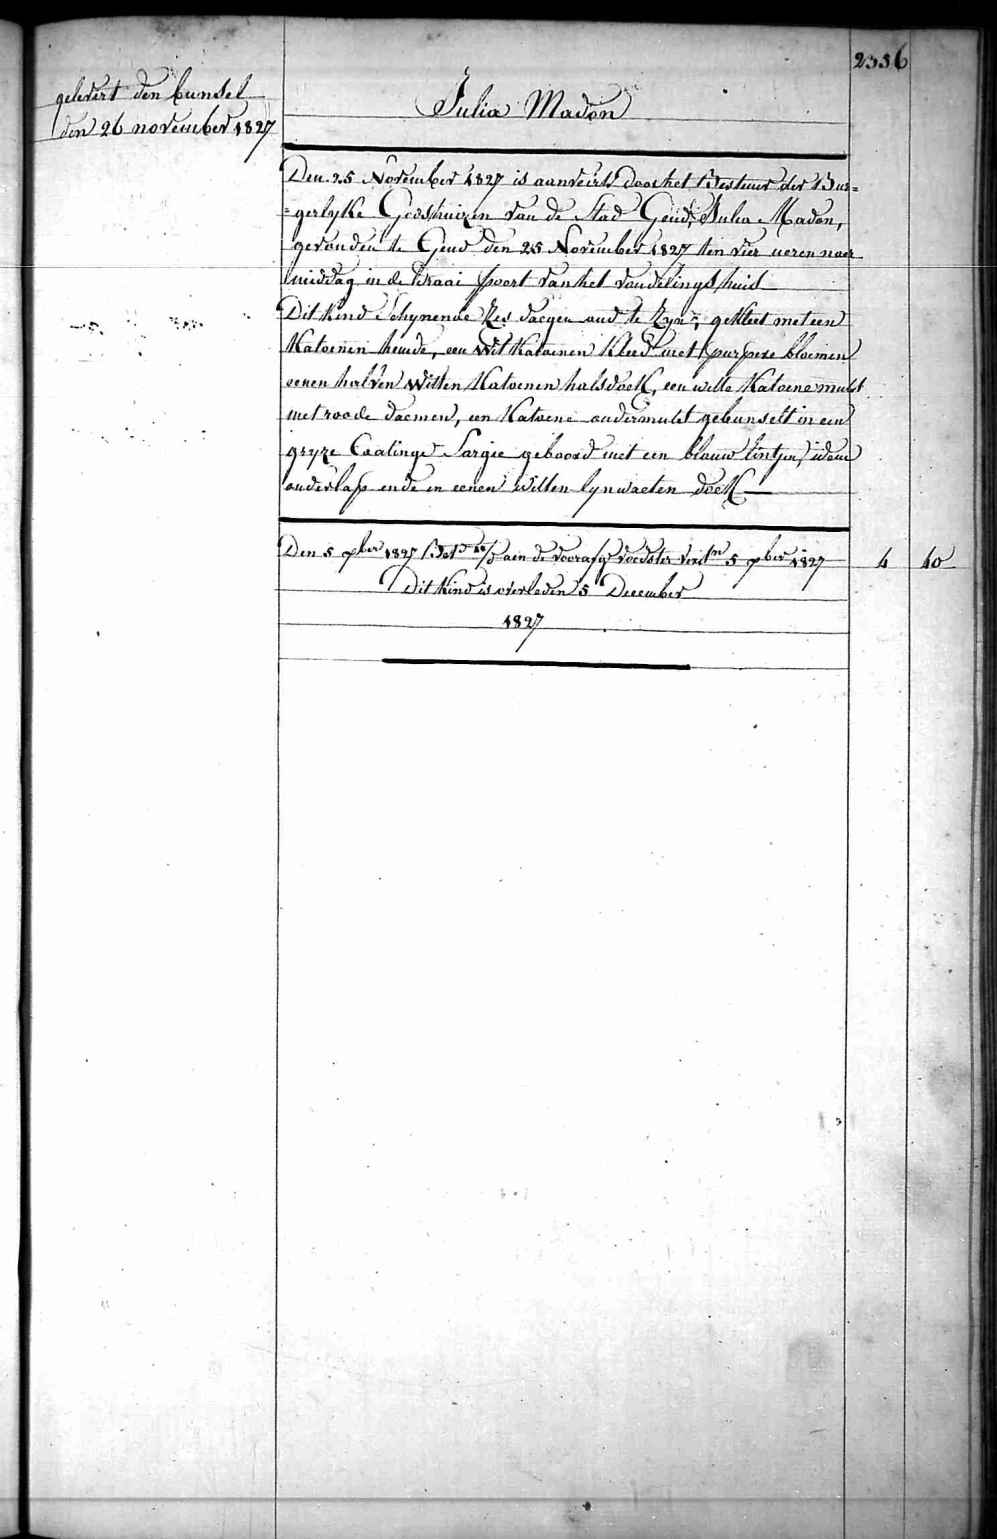 2336
gelevert den bunsel
den 26 november 1827
Julia Madon
Den 25 November 1827 is aanveirdt door het Bestuur der Bur=
=gerlyke Godshuizen van de Stad Gend, Julia Madon,
gevonden te Gend den 25 November 1827 ten vier ueren naer
middag in de draai poort van het vondelings huis
Dit kind schynende zes daegen oud te zyn, gekleet met een
Katoenen hemde, een wit katoenen kleed met purpere bloemen
eenen halven witten katoenen halsdoek, een witte katoene muts
met roode daemen, een katoene ondermuts gebunselt in een
gryze Sargie geboord met een blauw lintjen, idem
onderlap ende in eenen witten lynwaeten doek
Den 5 xber 1827 Bet aen de voedster 5 xber 1827 4 40
Dit kind is overleden 5 December
1827